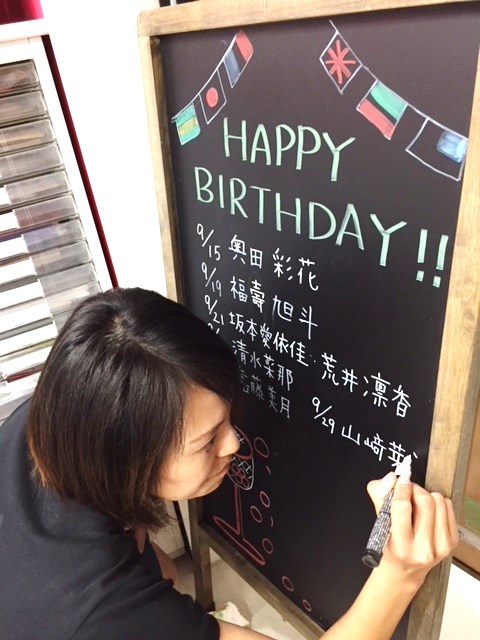 HAPPY
BIRTHDAY!!
9/15 奥田 彩花
9/19 福壽 旭斗
9/21 坂本愛依佳・荒井凛香
清水菜那
藤美月
9/29 山﨑